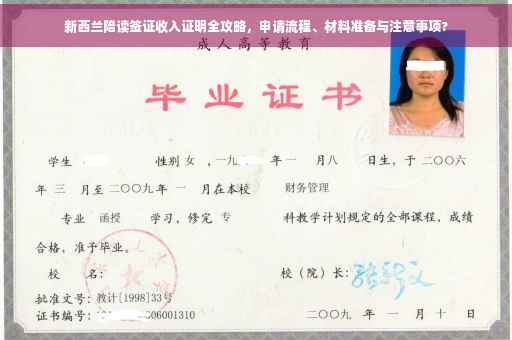 新西兰陪读签证收入证明全攻略，申请流程、材料准备与注意事项?
成人高等教育
毕业证书
学生 性别 女 ，一九 年 一 月 八 日生，于 二〇〇六
年 三 月至 二〇〇九 年 一 月在本校 财务管理
专业 函授 学习，修完 专 科教学计划规定的全部课程，成绩
合格，准予毕业。
校 名： 校（院）长：
批准文号：教计[1998]33号
证书编号： 06001310 二〇〇九 年 一 月 十 日